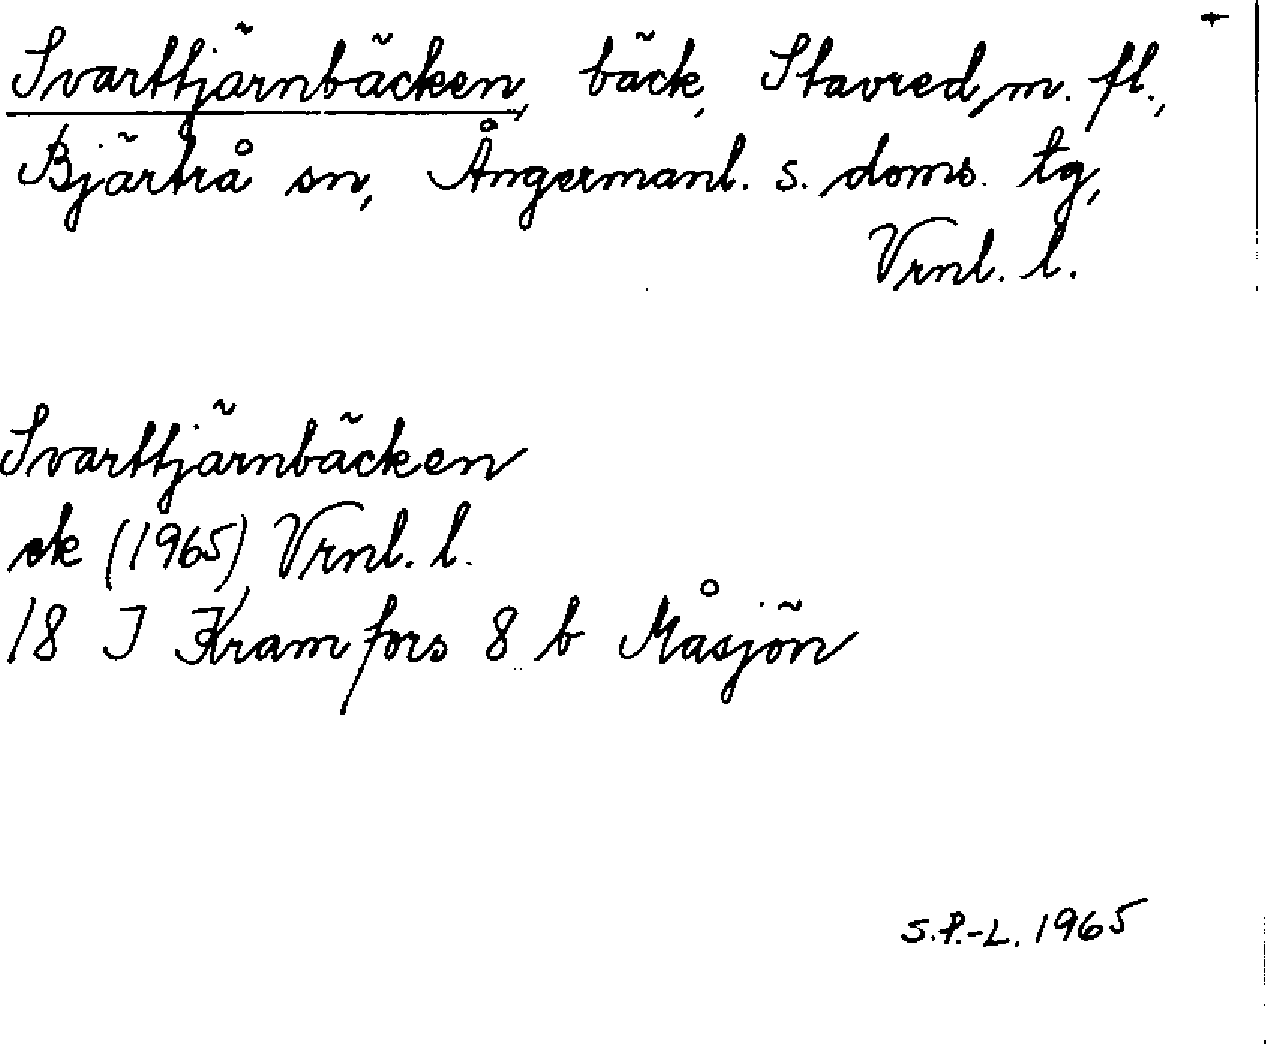 Svarttjärnbäcken, bäck, Stavred, m. fl.,
Bjärtrå sn, Ångermanl. s. doms. tg,
Vrnl. l.
Svarttjärnbäcken
ek (1965) Vrnl. l.
18 I Kramfors 8 b Måsjön
S.P.-L. 1965